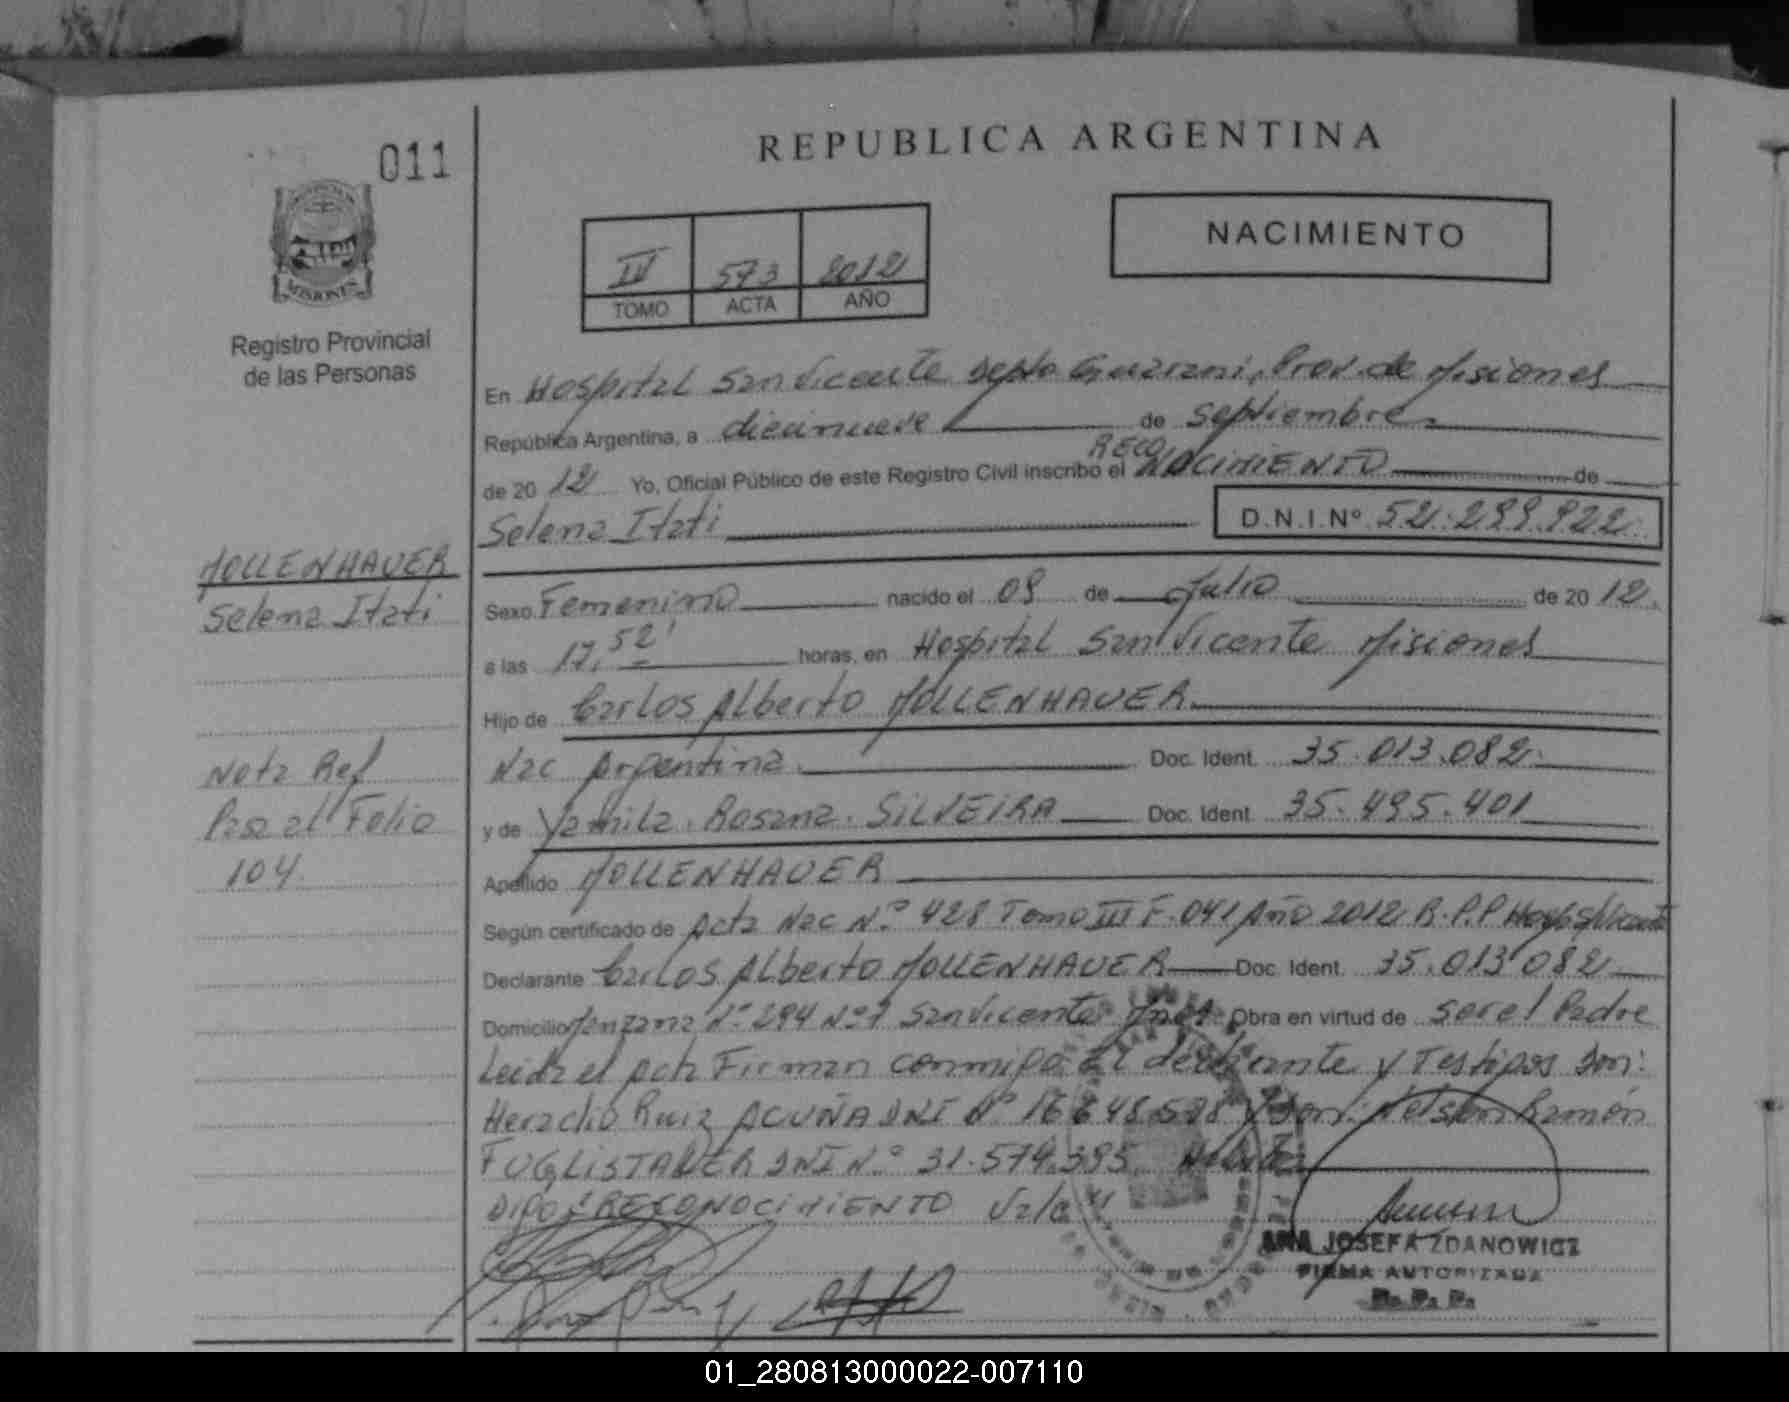 011
REPUBLICA ARGENTINA
NACIMIENTO
573 2012
TOMO ACTA AÑO
MISIONES
Registro Provincial
de las Personas
En Hospital San Vicente Depto Guarani, Prov. de Misiones
República Argentina, a diecinueve de septiembre
de 2012 Yo, Oficial Público de este Registro Civil inscribo el RECONOCIMIENTO de
Selena Itati D.N.I.Nº 52.299.922
MOLLENHAUER
Selena Itati
Sexo Femenino nacido el 09 de Julio de 2012.
a las 17,52' horas, en Hospital San Vicente Misiones
Hijo de Carlos Alberto MOLLENHAUER
Nac Argentina Doc. Ident. 35.013.082
y de Yamila Rosana SILVEIRA Doc. Ident. 35.495.401
Nota Ref
Pasa al Folio
104
Apellido MOLLENHAUER
Según certificado de Acta Nac Nº 428 Tomo III F. 041 Año 2012 R.P.P
Declarante Carlos Alberto MOLLENHAUER Doc. Ident. 35.013.082
Domicilio Manzana Nº 294 Nº 7 San Vicente Obra en virtud de ser el Padre
Leida el Acta Firman conmigo El declarante y Testigos Don:
Heraclio Ruiz ACUÑA DNI Nº 16.648.598 y Don: Nelson Ramón
FUGLISTALER DNI N.º 31.574.395
Digo: "RECONOCIMIENTO Vale"
ANA JOSEFA ZDANOWICZ
FIRMA AUTORIZADA
R. P. P.
01_280813000022-007110